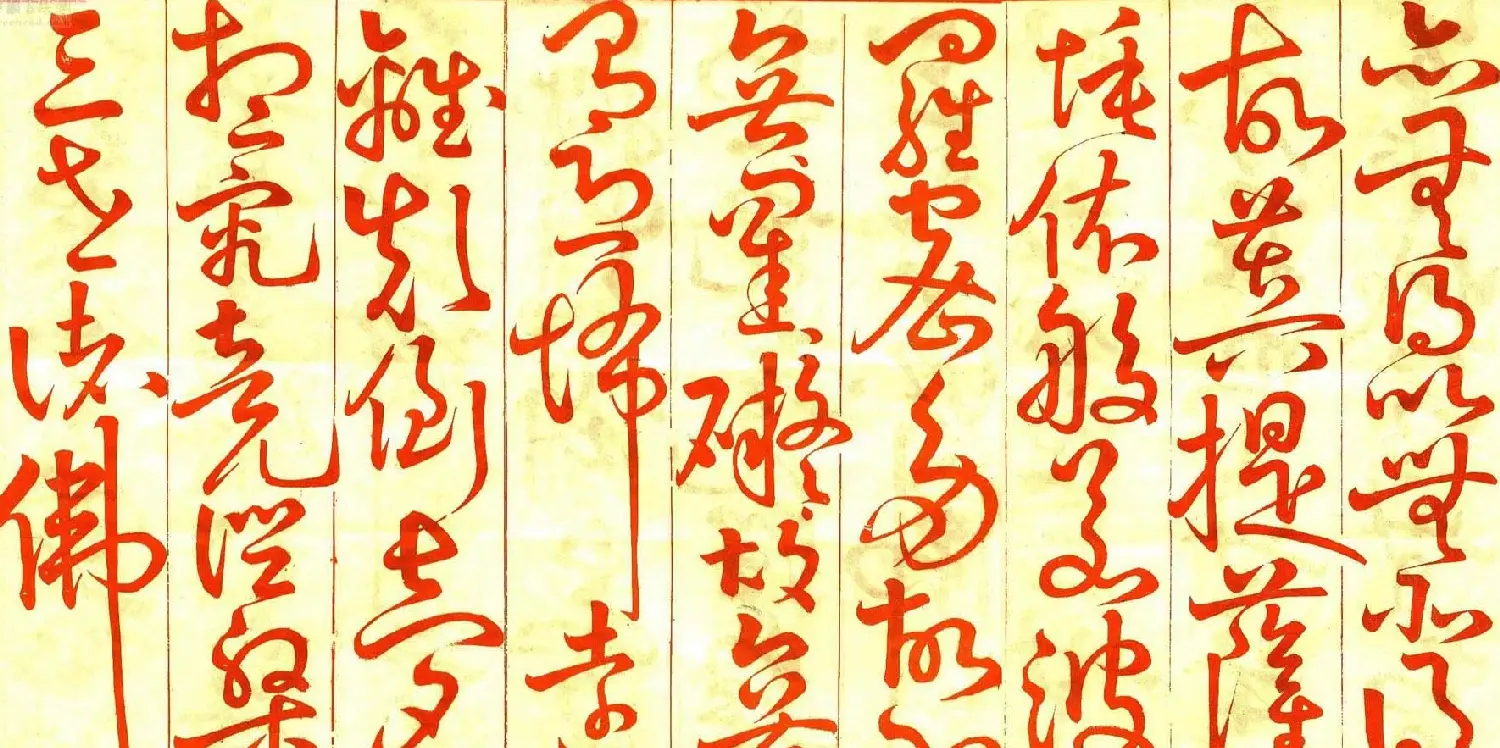 亦無得以無所得
故菩提薩
埵依般若波
羅蜜多故
無罣礙故無
有恐怖遠
離顛倒夢
想究竟涅槃
三世諸佛